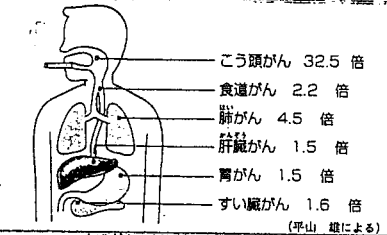 こう頭がん 32.5 倍
食道がん 2.2 倍
はい
肺がん 4.5 倍
かんぞう
肝臓がん 1.5 倍
胃がん 1.5 倍
すい臓がん 1.6 倍
(平山 雄による)